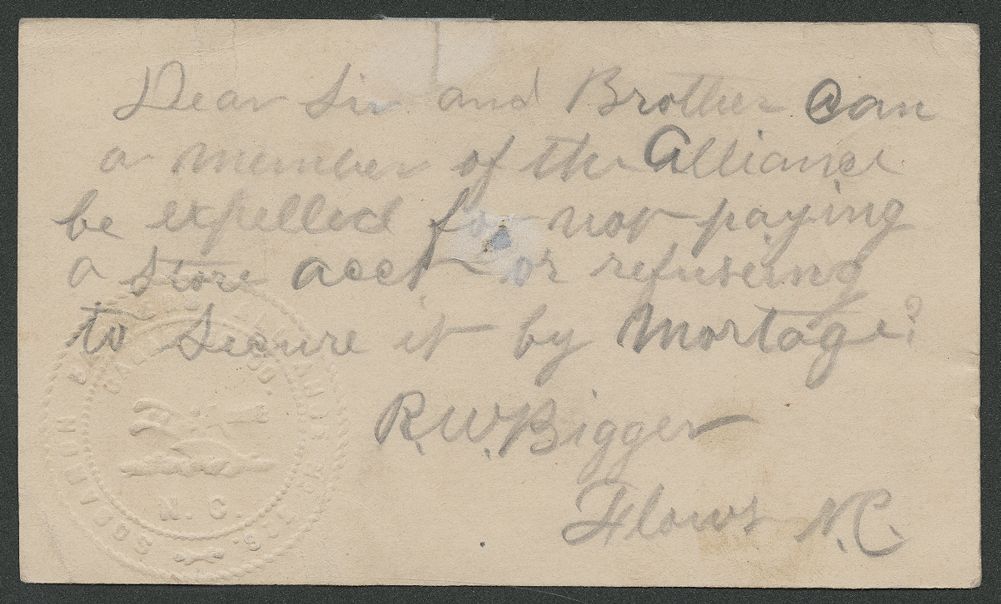 Dear Sir and Brother Can
a member of the Alliance
be expelled for not paying
a store acct or refuseing
to Secure it by Mortage?
R.W. Bigger
Flows N.C.
N. C.